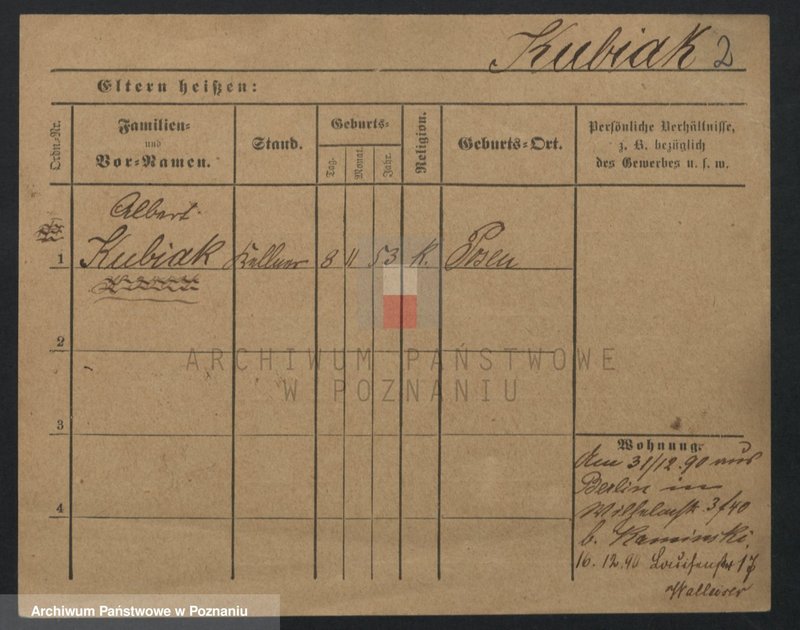 Kubiak 2
Eltern heißen:
Ordn.-Nr.
Familien-
und
Vor-Namen.
Stand.
Geburts-
Tag.
Monat.
Jahr.
Religion.
Geburts-Ort.
Persönliche Verhältnisse,
z. B. bezüglich
des Gewerbes u. s. w.
Albert
1 Kubiak Kellner 8 11 53 K. Posen
2
ARCHIWUM PAŃSTWOWE
W POZNANIU
3
Wohnung.
Am 31/12.90 aus
Berlin in
Wilhelmstr. 3/40
4
b. Kaminski,
16.12.90 Louisenstr 17
Archiwum Państwowe w Poznaniu